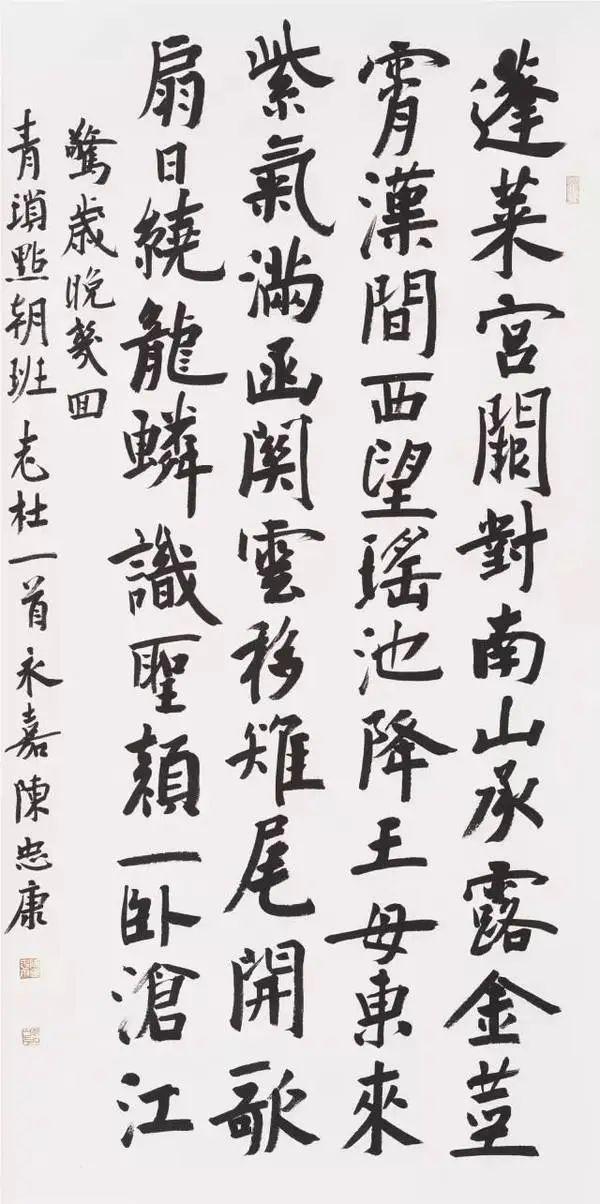 蓬萊宫闕對南山承露金莖
霄漢間西望瑤池降王母東來
紫氣滿函関雲移雉尾開歌
扇日繞龍鱗識聖顔一卧滄江
驚歲晚幾囬
青瑣點朝班老杜一首永嘉陳忠康